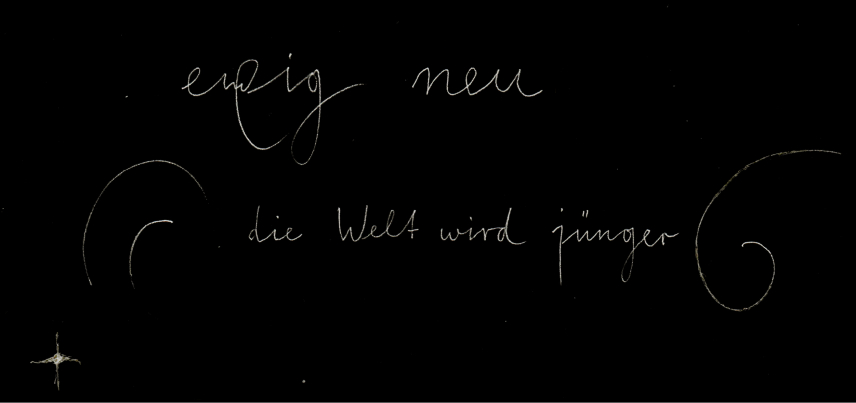 ewig neu
die Welt wird jünger